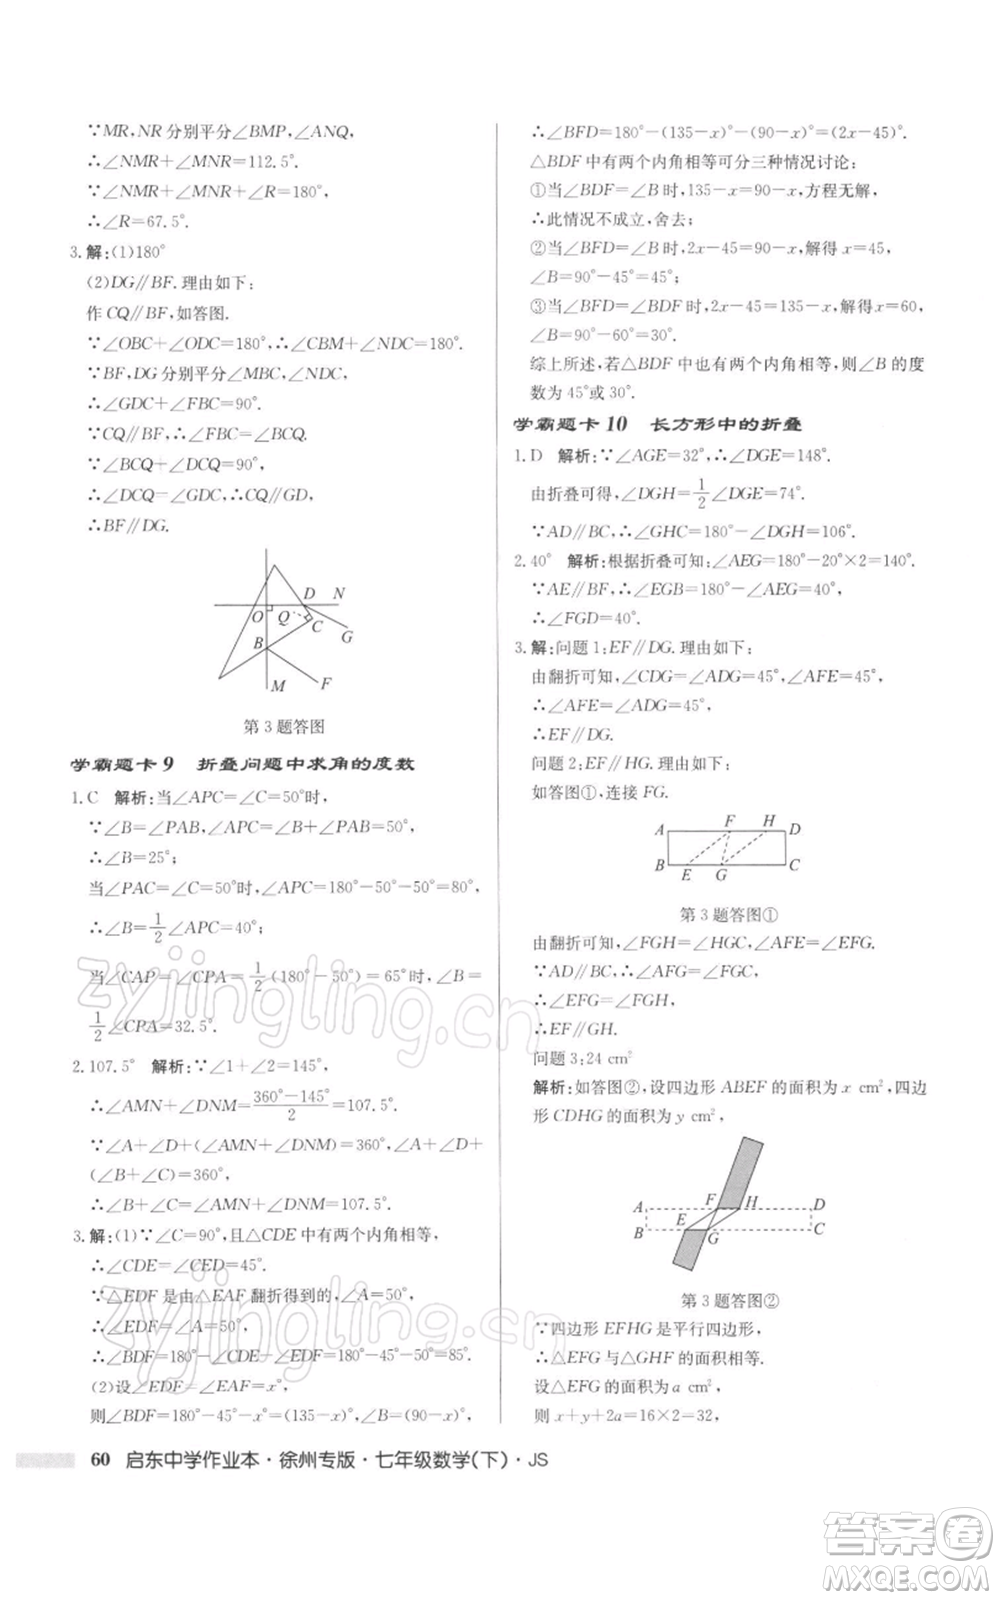 ∵MR,NR 分别平分∠BMP,∠ANQ,
∴∠NMR+∠MNR=112.5°.
∵∠NMR+∠MNR+∠R=180°,
∴∠R=67.5°.
3.解:(1)180°
(2)DG∥BF.理由如下:
作 CQ∥BF,如答图.
∵∠OBC+∠ODC=180°,∴∠CBM+∠NDC=180°.
∵BF,DG分别平分∠MBC,∠NDC,
∴∠GDC+∠FBC=90°.
∵CQ∥BF,∴∠FBC=∠BCQ.
∵∠BCQ+∠DCQ=90°,
∴∠DCQ=∠GDC,∴CQ∥GD,
∴BF∥DG.
D N
O Q C
G
B
M F
第 3 题答图
学霸题卡 9 折叠问题中求角的度数
1.C 解析:当∠APC=∠C=50°时,
∵∠B=∠PAB,∠APC=∠B+∠PAB=50°,
∴∠B=25°;
当∠PAC=∠C=50°时,∠APC=180°-50°-50°=80°,
∴∠B=1/2∠APC=40°;
当∠CAP=∠CPA=1/2(180°-50°)=65°时,∠B=
1/2∠CPA=32.5°.
2.107.5° 解析:∵∠1+∠2=145°,
∴∠AMN+∠DNM=(360°-145°)/2=107.5°.
∵∠A+∠D+(∠AMN+∠DNM)=360°,∠A+∠D+
(∠B+∠C)=360°,
∴∠B+∠C=∠AMN+∠DNM=107.5°.
3.解:(1)∵∠C=90°,且△CDE 中有两个内角相等,
∴∠CDE=∠CED=45°.
∵△EDF 是由△EAF 翻折得到的,∠A=50°,
∴∠EDF=∠A=50°,
∴∠BDF=180°-∠CDE-∠EDF=85°.
(2)设∠EDF=∠EAF=x°,
则∠BDF=180°-45°-x°=(135-x)°,∠B=(90-x)°,
∴∠BFD=180°-(135-x)°-(90-x)°=(2x-45)°.
△BDF 中有两个内角相等可分三种情况讨论:
①当∠BDF=∠B时,135-x=90-x,方程无解,
∴此情况不成立,舍去;
②当∠BFD=∠B时,2x-45=90-x,解得 x=45,
∠B=90°-45°=45°;
③当∠BFD=∠BDF时,2x-45=135-x,解得x=60,
∠B=90°-60°=30°.
综上所述,若△BDF 中也有两个内角相等,则∠B的度
数为 45°或 30°.
学霸题卡 10 长方形中的折叠
1.D 解析:∵∠AGE=32°,∴∠DGE=148°.
由折叠可得,∠DGH=1/2∠DGE=74°.
∵AD∥BC,∴∠GHC=180°-∠DGH=106°.
2.40° 解析:根据折叠可知:∠AEG=180°-20°×2=140°.
∵AE∥BF,∴∠EGB=180°-∠AEG=40°,
∴∠FGD=40°.
3.解:问题 1:EF∥DG.理由如下:
由翻折可知,∠CDG=∠ADG=45°,∠AFE=45°,
∴∠AFE=∠ADG=45°,
∴EF∥DG.
问题 2:EF∥HG.理由如下:
如答图①,连接 FG.
A F H D
B E G C
第 3 题答图①
由翻折可知,∠FGH=∠HGC,∠AFE=∠EFG.
∵AD∥BC,∴∠AFG=∠FGC,
∴∠EFG=∠FGH,
∴EF∥GH.
问题 3:24 cm²
解析:如答图②,设四边形 ABEF 的面积为 x cm²,四边
形 CDHG 的面积为 y cm²,
A F H D
B E G C
第 3 题答图②
∵四边形 EFHG 是平行四边形,
∴△EFG 与△GHF 的面积相等.
设△EFG 的面积为 a cm²,
则 x+y+2a=16×2=32,
60 启东中学作业本·徐州专版·七年级数学(下)·JS
zyjingling.cn
zyjingling.cn
答案圈
MXQE.COM